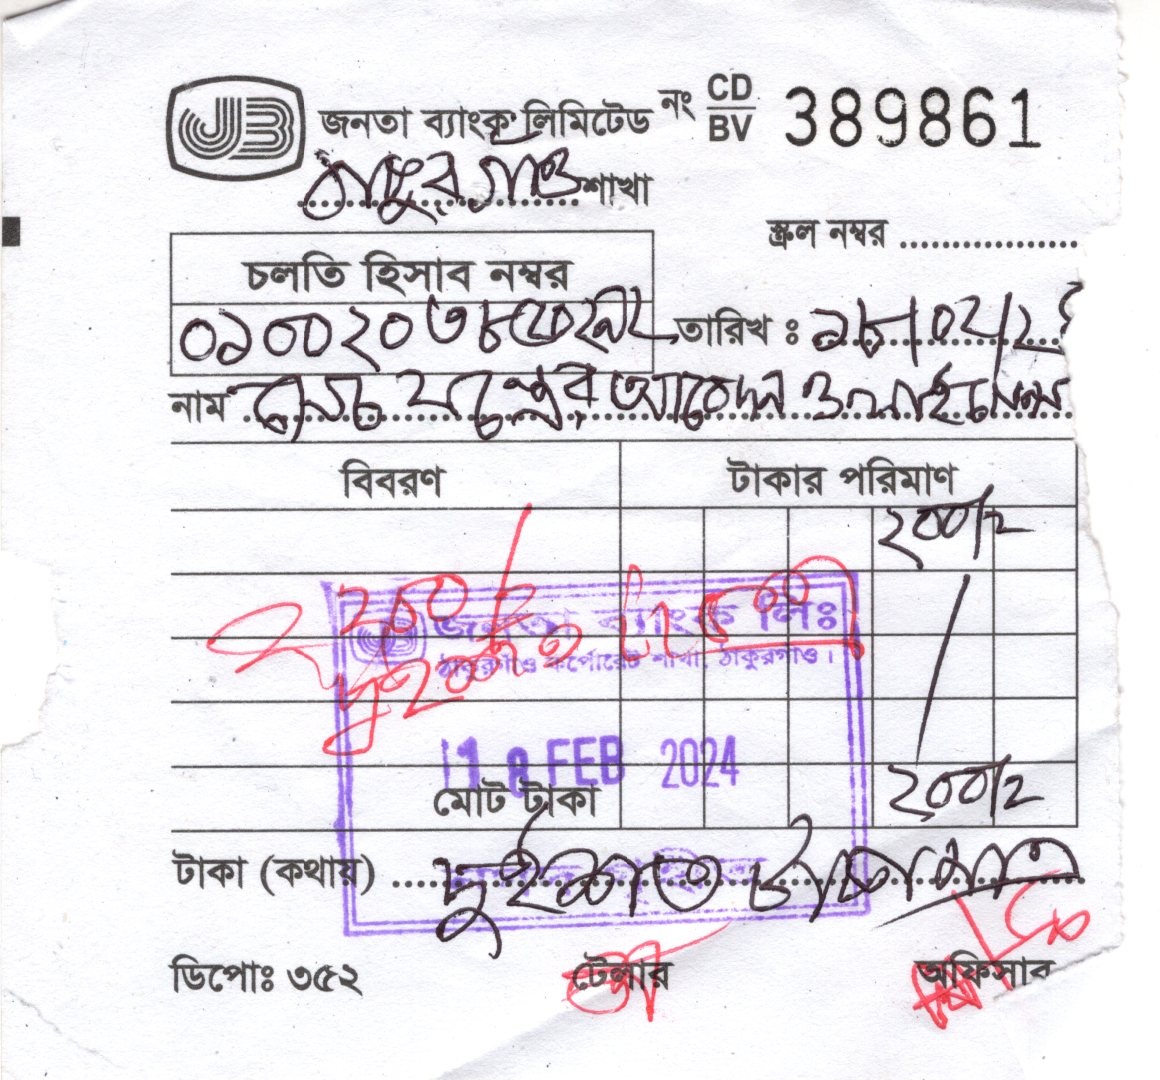 JB জনতা ব্যাংক লিমিটেড নং CD BV 389861
ঠাকুরগাঁও শাখা
স্ক্রল নম্বর
চলতি হিসাব নম্বর
তারিখ : ১৮/০২/২
নাম সেচ যন্ত্রের আবেদন ও লাইসেন্স
বিবরণ টাকার পরিমাণ
২০০/=
২০০/=
জনতা ব্যাংক লিঃ
ঠাকুরগাঁও কর্পোরেট শাখা, ঠাকুরগাঁও।
18 FEB 2024
মোট টাকা ২০০/=
টাকা (কথায়) দুইশত টাকা মাত্র
ডিপোঃ ৩৫২ টেলার অফিসার